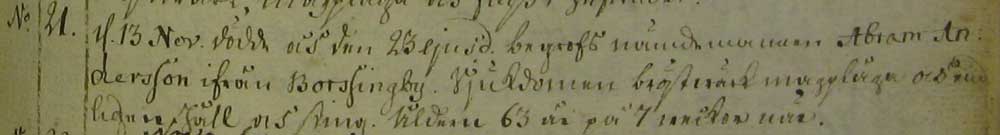 No. 21. d. 13 Nov. dödde och den 23 ejusd. begrofs nämdemannen Abram An-
dersson ifrån Borssingby. Sjukdomen bröstwärk magplåga och änd
ligen håll och sting. Åldern 63 år på 7 weckor när.